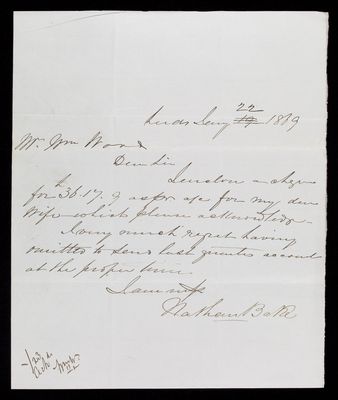 22
Leeds Jany 19 1869
Mr. Wm Wood
Dear Sir
I enclose a cheque
for £36.17.9 as pr a/c for my dear
Wife which please acknowledge
I very much regret having
omitted to send last quarters account
at the proper time
I am
Nathan Bate
1/23